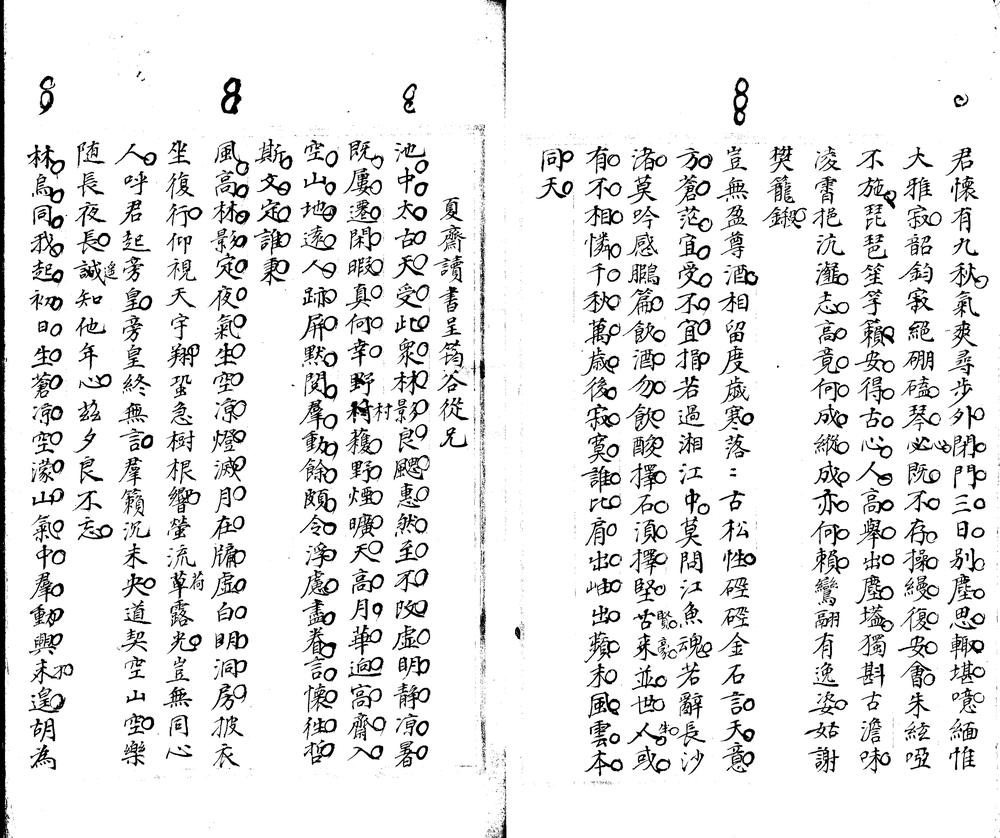 君懷有九秋氣爽尋步外閉門三日別塵思輙堪噫緬惟
大雅寂韶鈞寂絕硼磕琴必心既不存操縵復安會朱絃啞
不施琵琶笙竽籟安得古心人高舉出塵壒獨斟古澹味
凌霄挹沆瀣志高竟何成縱成亦何賴鸞翮有逸姿姑謝
樊籠鎩
豈無盈尊酒相留度歲寒落〻古松性硜硜金石言天意
方蒼茫宜受不宜捐若過湘江中莫問江魚魂若辭長沙
渚莫吟感鵩篇飲酒勿飲酸擇石須擇堅古來賢豪並世人或
有不相憐千秋萬歲後寂寞誰比肩出岫出蘋末風雲本
同天
夏齋讀書呈筠谷從兄
池中太古天受此衆林影良颸惠然至不改虛明靜凉暑
既屢遷閑暇真何幸野村穫野煙曠天高月華逈高齋入
空山地遠人跡屏默閱羣動餘頗令淨慮盡眷言懷往哲
斯文定誰秉
風高林影定夜氣生空凉燈滅月在牖虛白明洞房披衣
坐復行仰視天宇翔蛩急樹根響螢流草荷露光豈無同心
人呼君起旁皇旁皇終無言羣籟沉未央道契空山空樂
随長夜長誠遙知他年心茲夕良不忘
林烏同我起初日生蒼凉空濛山氣中羣動興未遑胡為